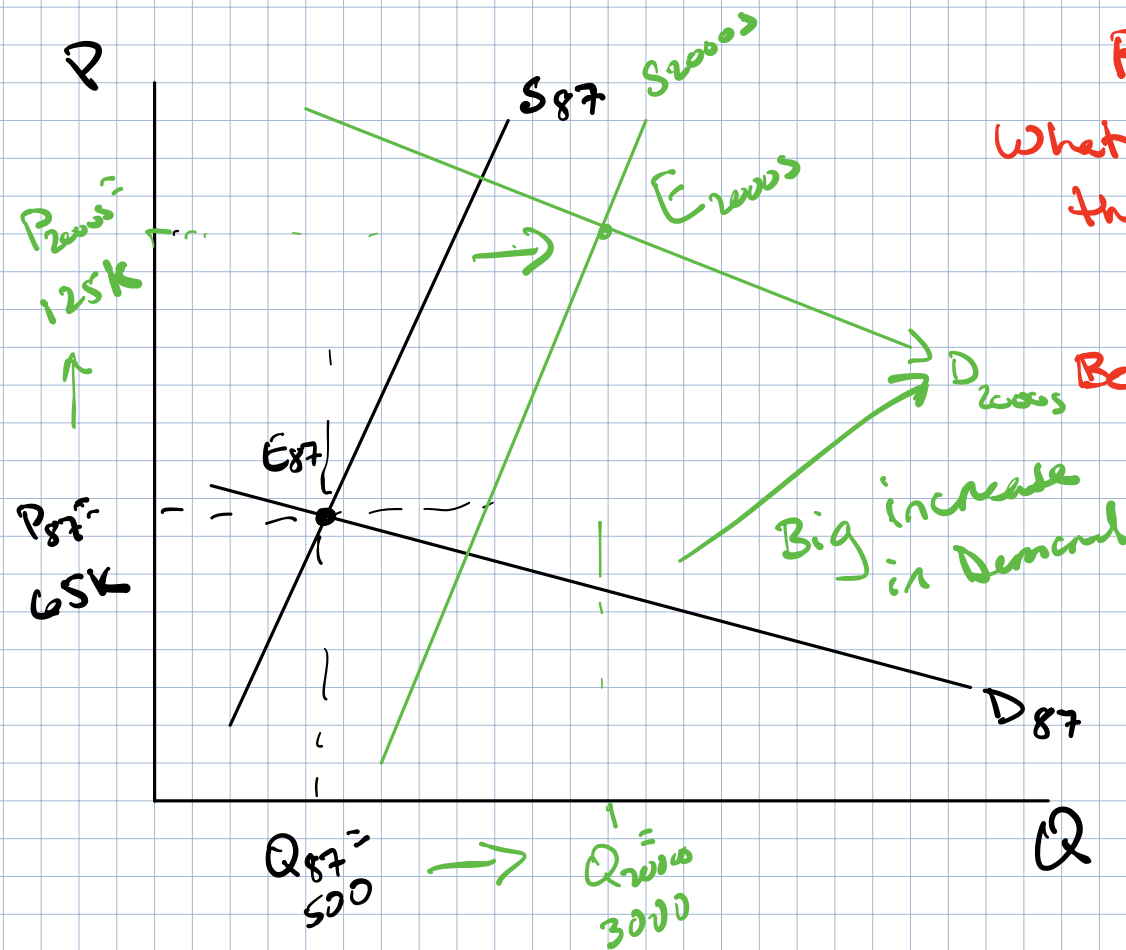 P
S87
S2000s
What
th
E2000s
P2000s =
125K
D2000s
Be
E87
P87 =
65K
Big increase
in Demand
D87
Q
Q87 =
500
Q2000s =
3000